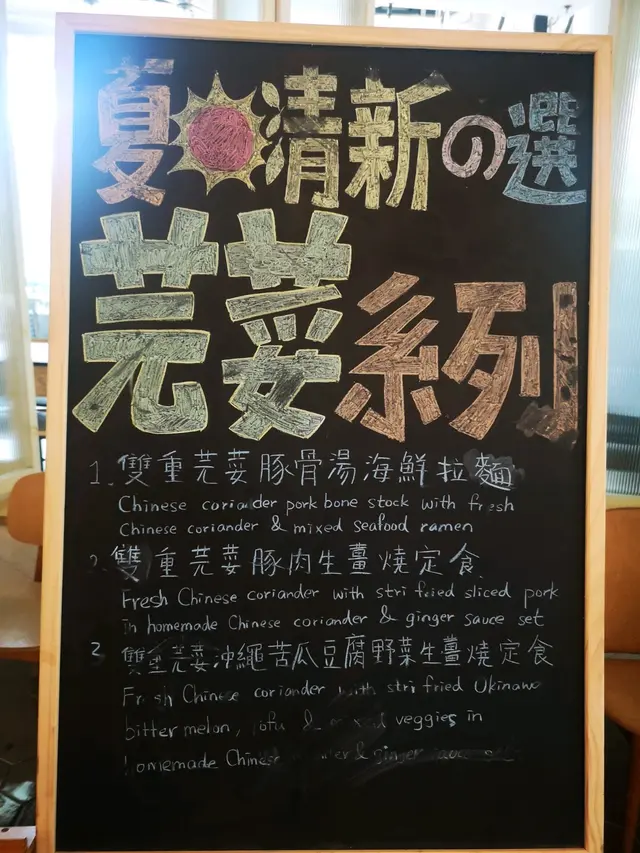 夏清新の選
芫荽系列
1. 雙重芫荽豚骨湯海鮮拉麵
Chinese coriander pork bone stock with fresh
Chinese coriander & mixed seafood ramen
2. 雙重芫荽豚肉生薑燒定食
Fresh Chinese coriander with stri fried sliced pork
in homemade Chinese coriander & ginger sauce set
3 雙重芫荽沖繩苦瓜豆腐野菜生薑燒定食
Fresh Chinese coriander with stri fried Okinawa
bitter melon, tofu & mixed veggies in
homemade Chinese & ginger sauce